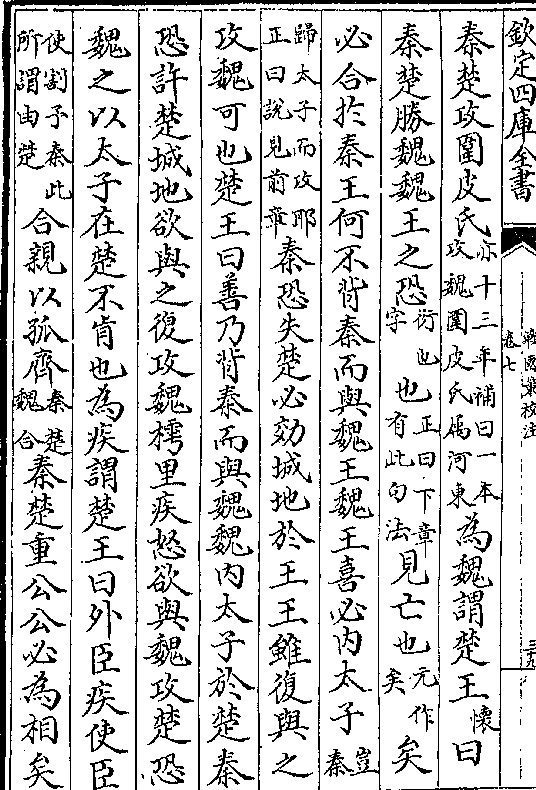 欽定四庫全書
戰國策校注
卷七
三十九
秦楚攻圍皮氏亦十三年補曰一本攻魏圍皮氏屬河東為魏謂楚王懷曰
秦楚勝魏魏王之恐衍也字也正曰下章有此句法見亡也元作矣矣
必合於秦王何不背秦而與魏王魏王喜必内太子豈秦
歸太子而攻耶正曰說見前章秦恐失楚必効城地於王王雖復與之
攻魏可也楚王曰善乃背秦而與魏魏内太子於楚秦
恐許楚城地欲與之復攻魏樗里疾怒欲與魏攻楚恐
魏之以太子在楚不肯也為疾謂楚王曰外臣疾使臣
使割予秦此所謂由楚合親以孤齊秦楚魏合秦楚重公公必為相矣